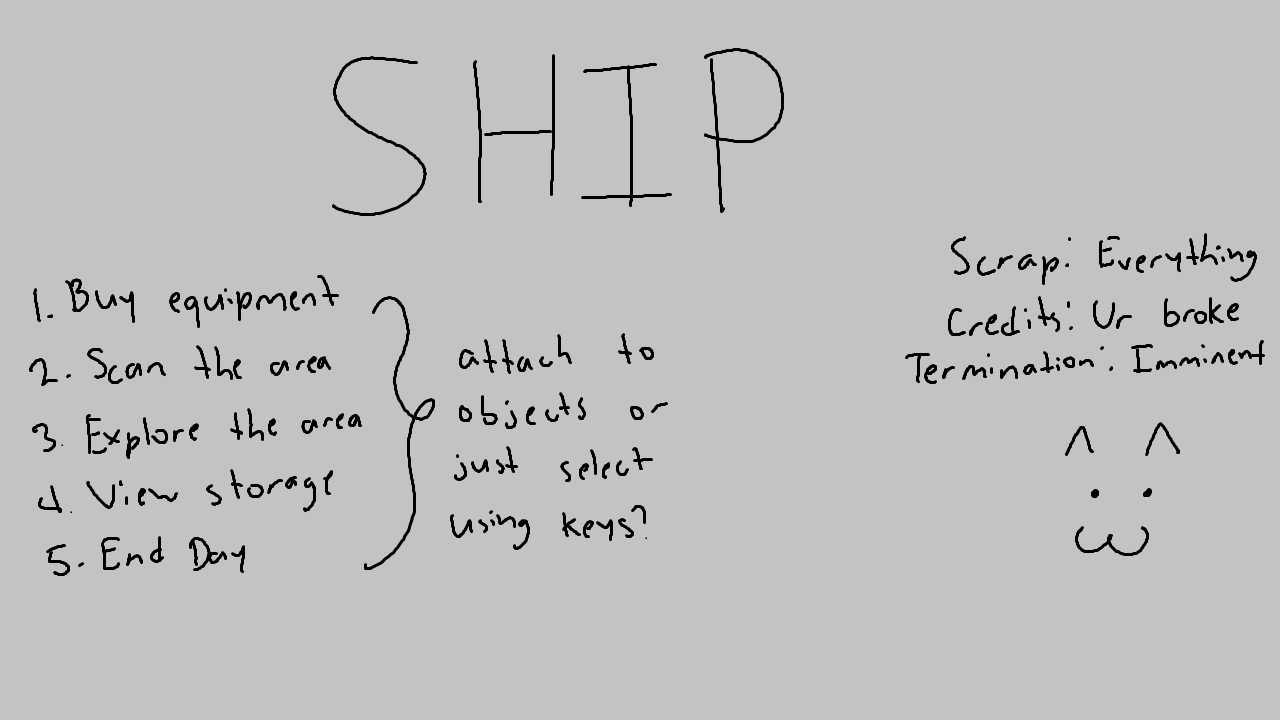 SHIP
1. Buy equipment
2. Scan the area
3. Explore the area
4. View storage
5. End Day
attach to
objects or
just select
using keys?
Scrap: Everything
Credits: Ur broke
Termination: Imminent